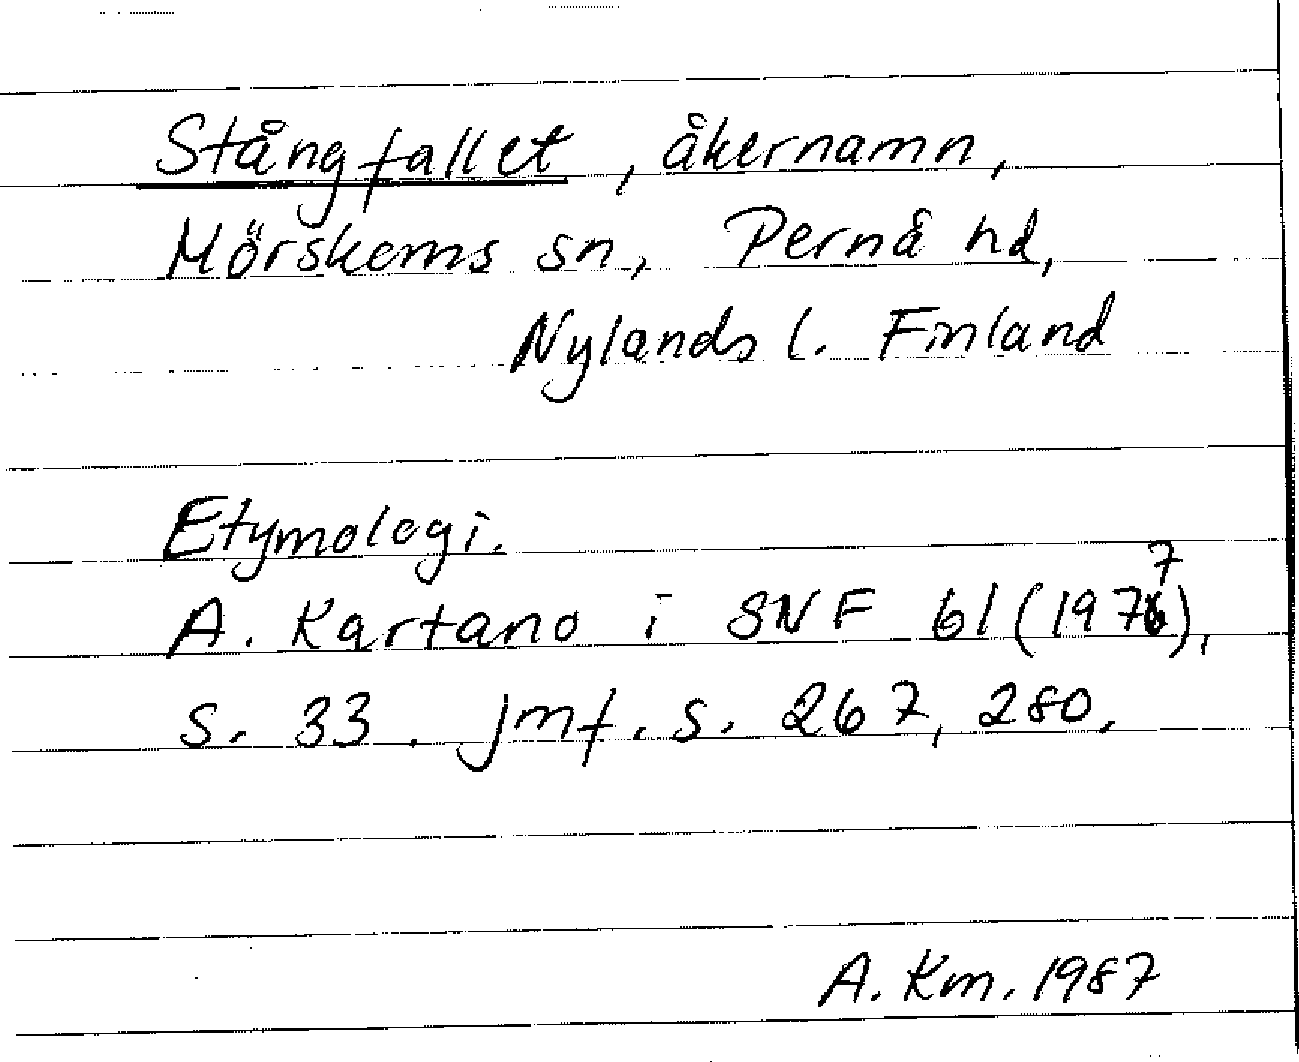 Stångfallet, åkernamn,
Mörskoms sn, Pernå hd,
Nylands l. Finland
Etymologi.
A. Kartano i SNF 61 (1977),
s. 33. Jmf. s. 267, 280.
A. Km. 1987